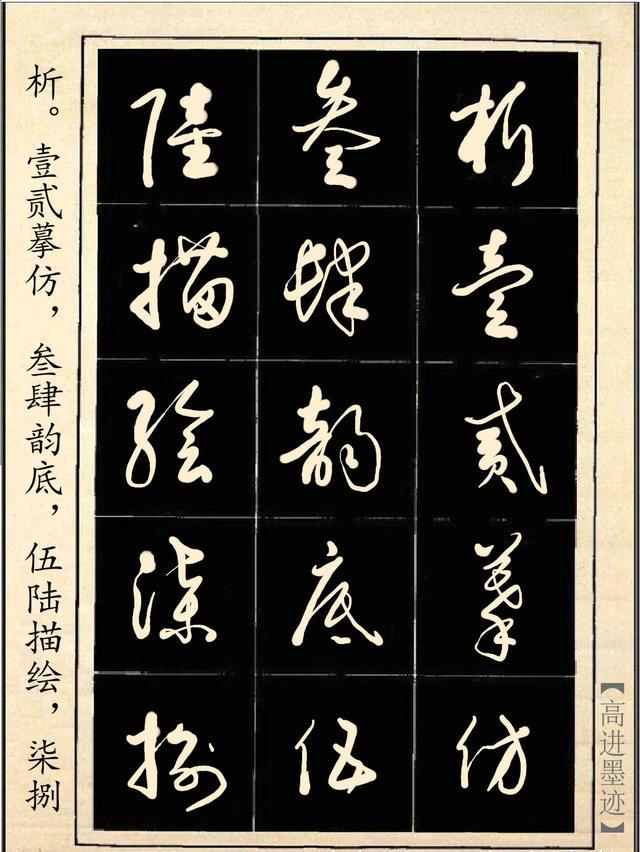 析壹贰摹仿
叁肆韵底伍
陆描绘柒捌
析。壹贰摹仿，叁肆韵底，伍陆描绘，柒捌
【高进墨迹】